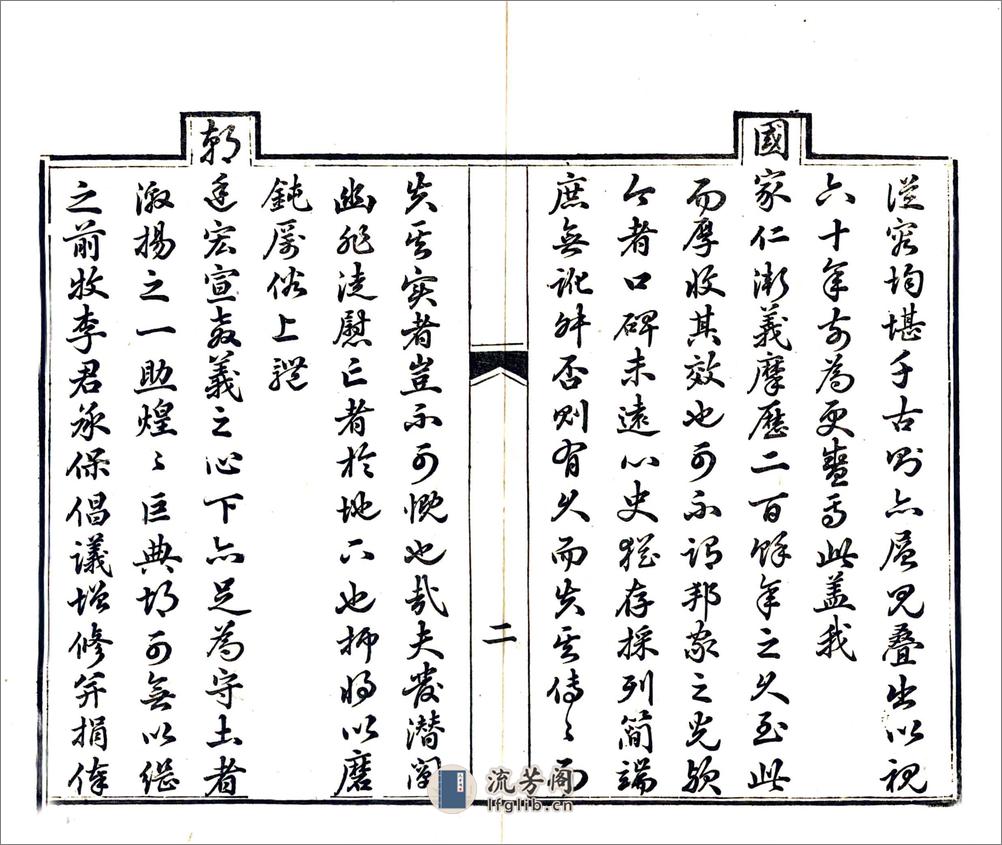 從容均堪千古則亦層見疊出以視
六十年前為更盛焉此蓋我
國家仁漸義摩歷二百餘年之久至此
而厚收其效也可不謂邦家之光歟
今者口碑未遠心史猶存採列簡端
庶無訛舛否則有久而失其傳傳而
二
失其實者豈不可慨也哉夫發潛闡
幽非徒慰亡者於地下也抑將以磨
鈍厲俗上體
朝廷宏宣教義之心下亦足為守土者
激揚之一助煌煌巨典胡可無以繼
之前牧李君承保倡議增修并捐俸
流芳阁
lfglib.cn